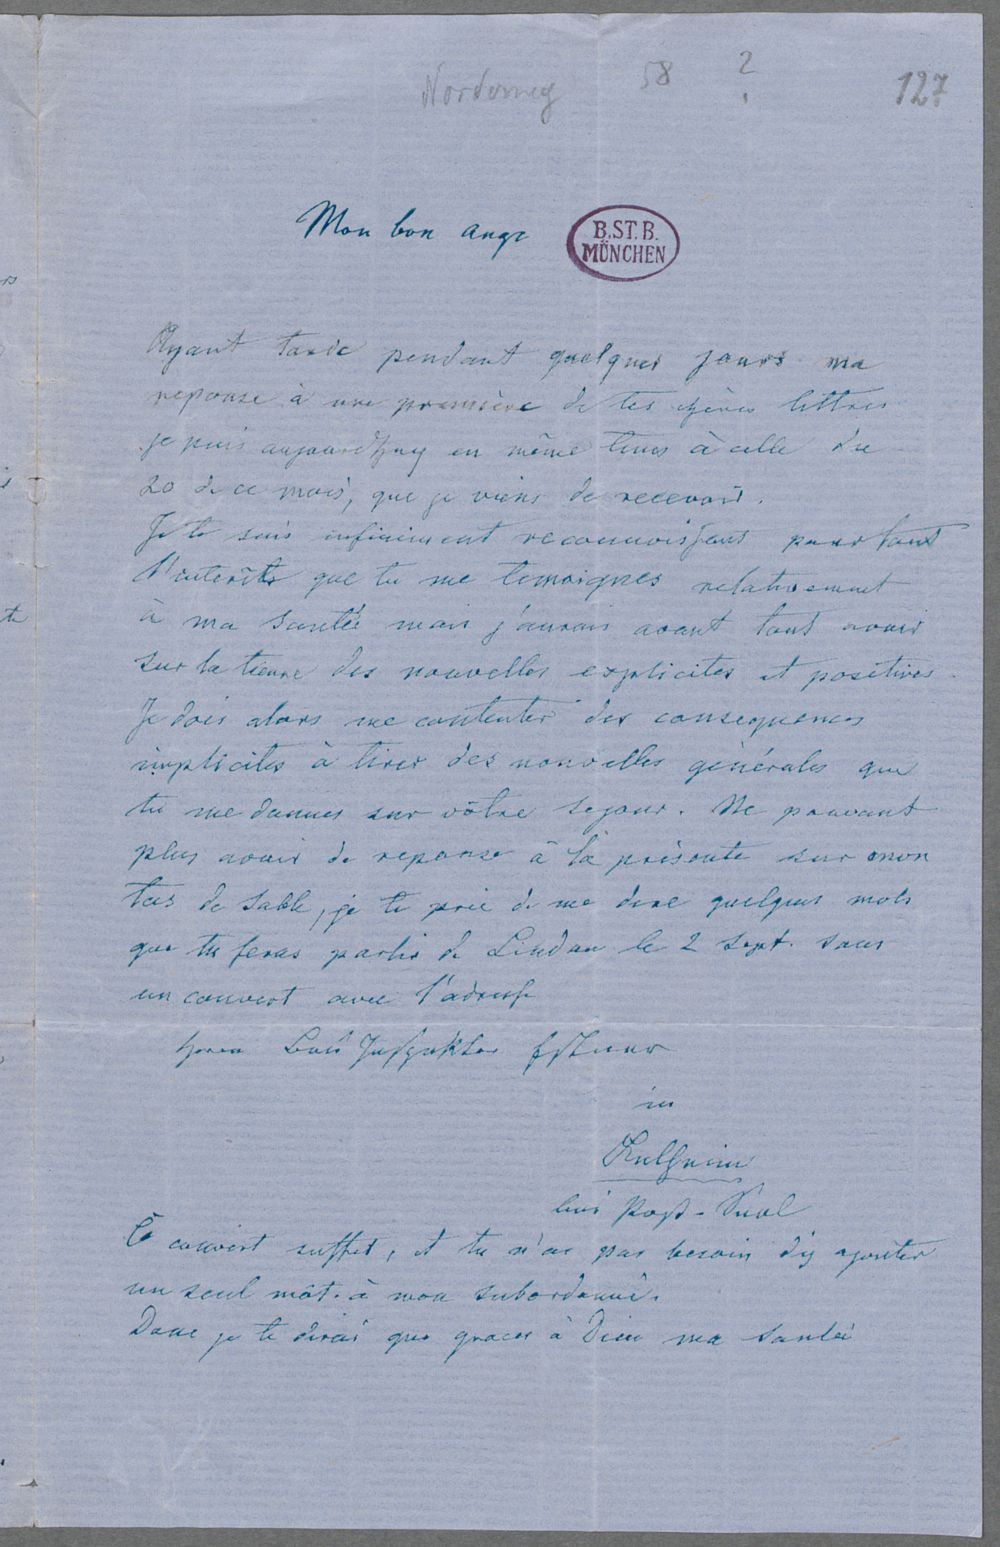 Norderney 58 ?
127
Mon bon ange
B.ST.B.
MÜNCHEN
Ayant tardé pendant quelques jours ma
reponse à une première de tes chères lettres
je puis en même tems à celle du
20 de ce mois, que je viens de recevoir.
Je te suis infiniment reconnoissant pour tout
l'interêt que tu me temoignes relativement
à ma santée mais j'aurais avant tout avoir
sur la tienne des nouvelles explicites et positives.
Je dois alors me contenter des consequences
implicites à tirer des nouvelles générales que
tu me donnes sur vôtre sejour. Ne pouvant
plus avoir de reponse à la présente sur mon
tas de sable, je te prie de me dire quelques mots
que tu feras partir de Lindau le 2 Sept. sous
un couvert avec l'adresse
Herrn
in
bei Post-
Ce couvert suffit, et tu n'as pas besoin d'y ajouter
un seul môt à mon subordonné.
Donc je te dirai que graces à Dieu ma santée